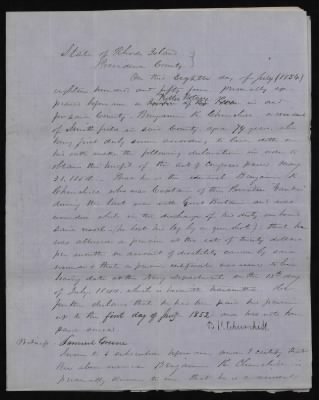 State of Rhode Island }
Providence County }
On this Eighth day of July (1854)
eighteen hundred and fifty four personally ap
peared before me a Public Notary in and
for said County, Benjamin K. Churchill a resident
of Smithfield in said County aged 74 years who
being first duly sworn according to law doth on
his oath make the following declaration in order to
obtain the benefit of the act of Congress passed
that he is the identical Benjamin K.
Churchill who was Captain of the Privateer Yankee
during the last war with Great Britain and was
wounded while in the discharge of his duty on board
said vessel (he lost his leg by a gun shot) that he
was allowed a pension at the rate of twenty dollars
per month on account of disability caused by said
wound & that a pension certificate was issued to him
bearing date at the Navy department on the
day of July, which is herewith transmitted. He
further declares that he has been paid his pension
up to the first day of July 1852, and has not been
paid since.
B. K. Churchill
Witness Samuel Greene
Sworn to & subscribed before me, and I certify that
the above named Benjamin K. Churchill is
personally known to me that he is a resident